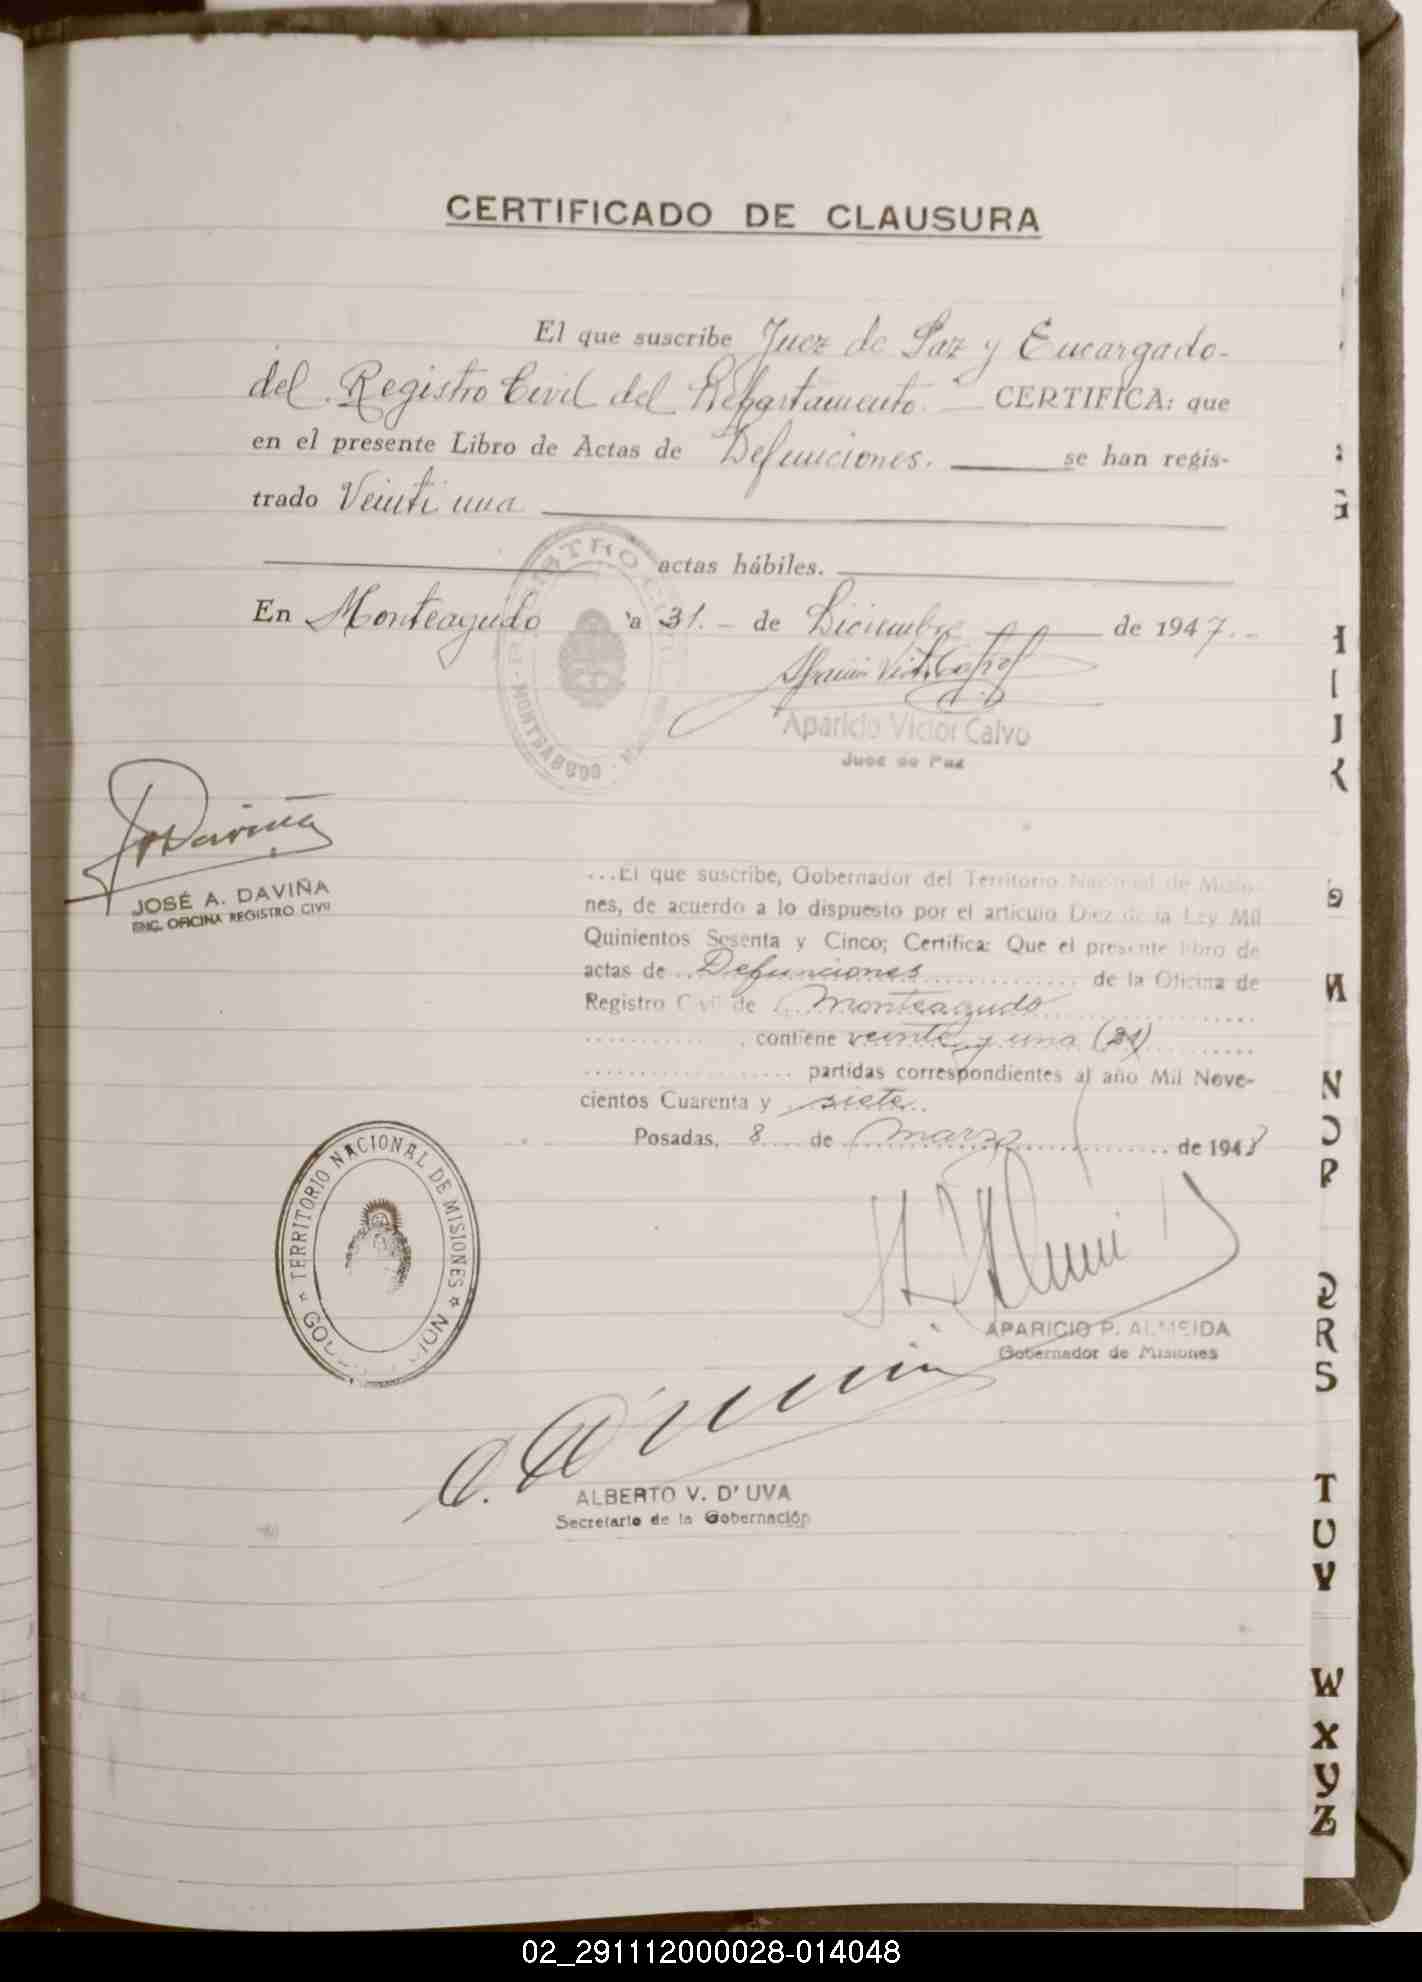 CERTIFICADO DE CLAUSURA
El que suscribe Juez de Paz y Encargado-
del Registro Civil del Departamento. — CERTIFICA: que
en el presente Libro de Actas de Defunciones. — se han regis-
trado Veinti una
actas hábiles.
En Monteagudo a 31. - de Diciembre de 1947.-
Aparicio Victor Calvo
Juez de Paz
JOSÉ A. DAVIÑA
ENC. OFICINA REGISTRO CIVIL
...El que suscribe, Gobernador del Territorio Nacional de Misio-
nes, de acuerdo a lo dispuesto por el artículo Diez de la Ley Mil
Quinientos Sesenta y Cinco; Certifica: Que el presente libro de
actas de Defunciones de la Oficina de
Registro Civil de Monteagudo
contiene veinte y una (21)
partidas correspondientes al año Mil Nove-
cientos Cuarenta y siete.
Posadas, 8 de marzo de 1948
TERRITORIO NACIONAL DE MISIONES
APARICIO P. ALMEIDA
Gobernador de Misiones
ALBERTO V. D'UVA
Secretario de la Gobernación
G
H
I
J
K
N
O
P
Q
R
S
T
U
V
W
X
Y
Z
02_291112000028-014048